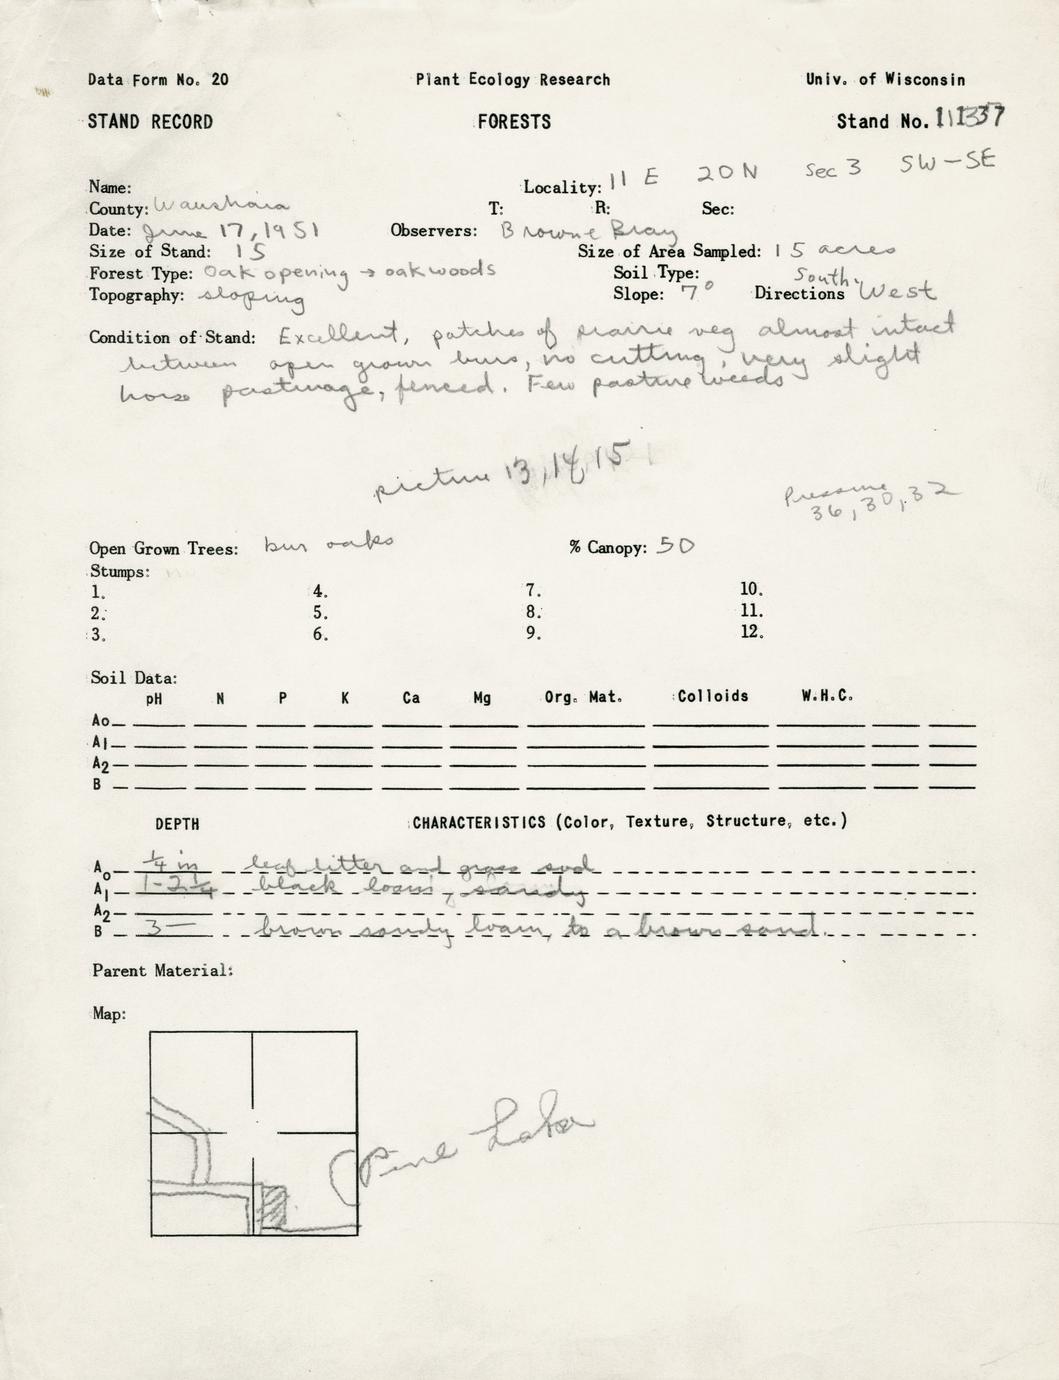 Data Form No. 20 Plant Ecology Research Univ. of Wisconsin
STAND RECORD FORESTS Stand No. 11337
Name: Locality: 11 E 20 N Sec 3 SW-SE
County: Waushara T: R: Sec:
Date: June 17, 1951 Observers: Browne Bray
Size of Stand: 15 Size of Area Sampled: 15 acres
Forest Type: Oak opening → oak woods Soil Type:
Topography: sloping Slope: 7° Directions South, West
Condition of Stand: Excellent, patches of prairie veg almost intact
between open grown burs, no cutting, very slight
horse pasturage, fenced. Few pasture weeds
picture 13, 14, 15
Pressure
36, 30, 32
Open Grown Trees: bur oaks % Canopy: 50
Stumps:
1. 4. 7. 10.
2. 5. 8. 11.
3. 6. 9. 12.
Soil Data:
pH N P K Ca Mg Org. Mat. Colloids W.H.C.
Ao
A1
A2
B
DEPTH CHARACTERISTICS (Color, Texture, Structure, etc.)
Ao 1/4 in leaf litter and grass sod
A1 1-2 1/4 black loam, sandy
A2
B 3— brown sandy loam, to a brown sand.
Parent Material:
Map:
Pine Lake